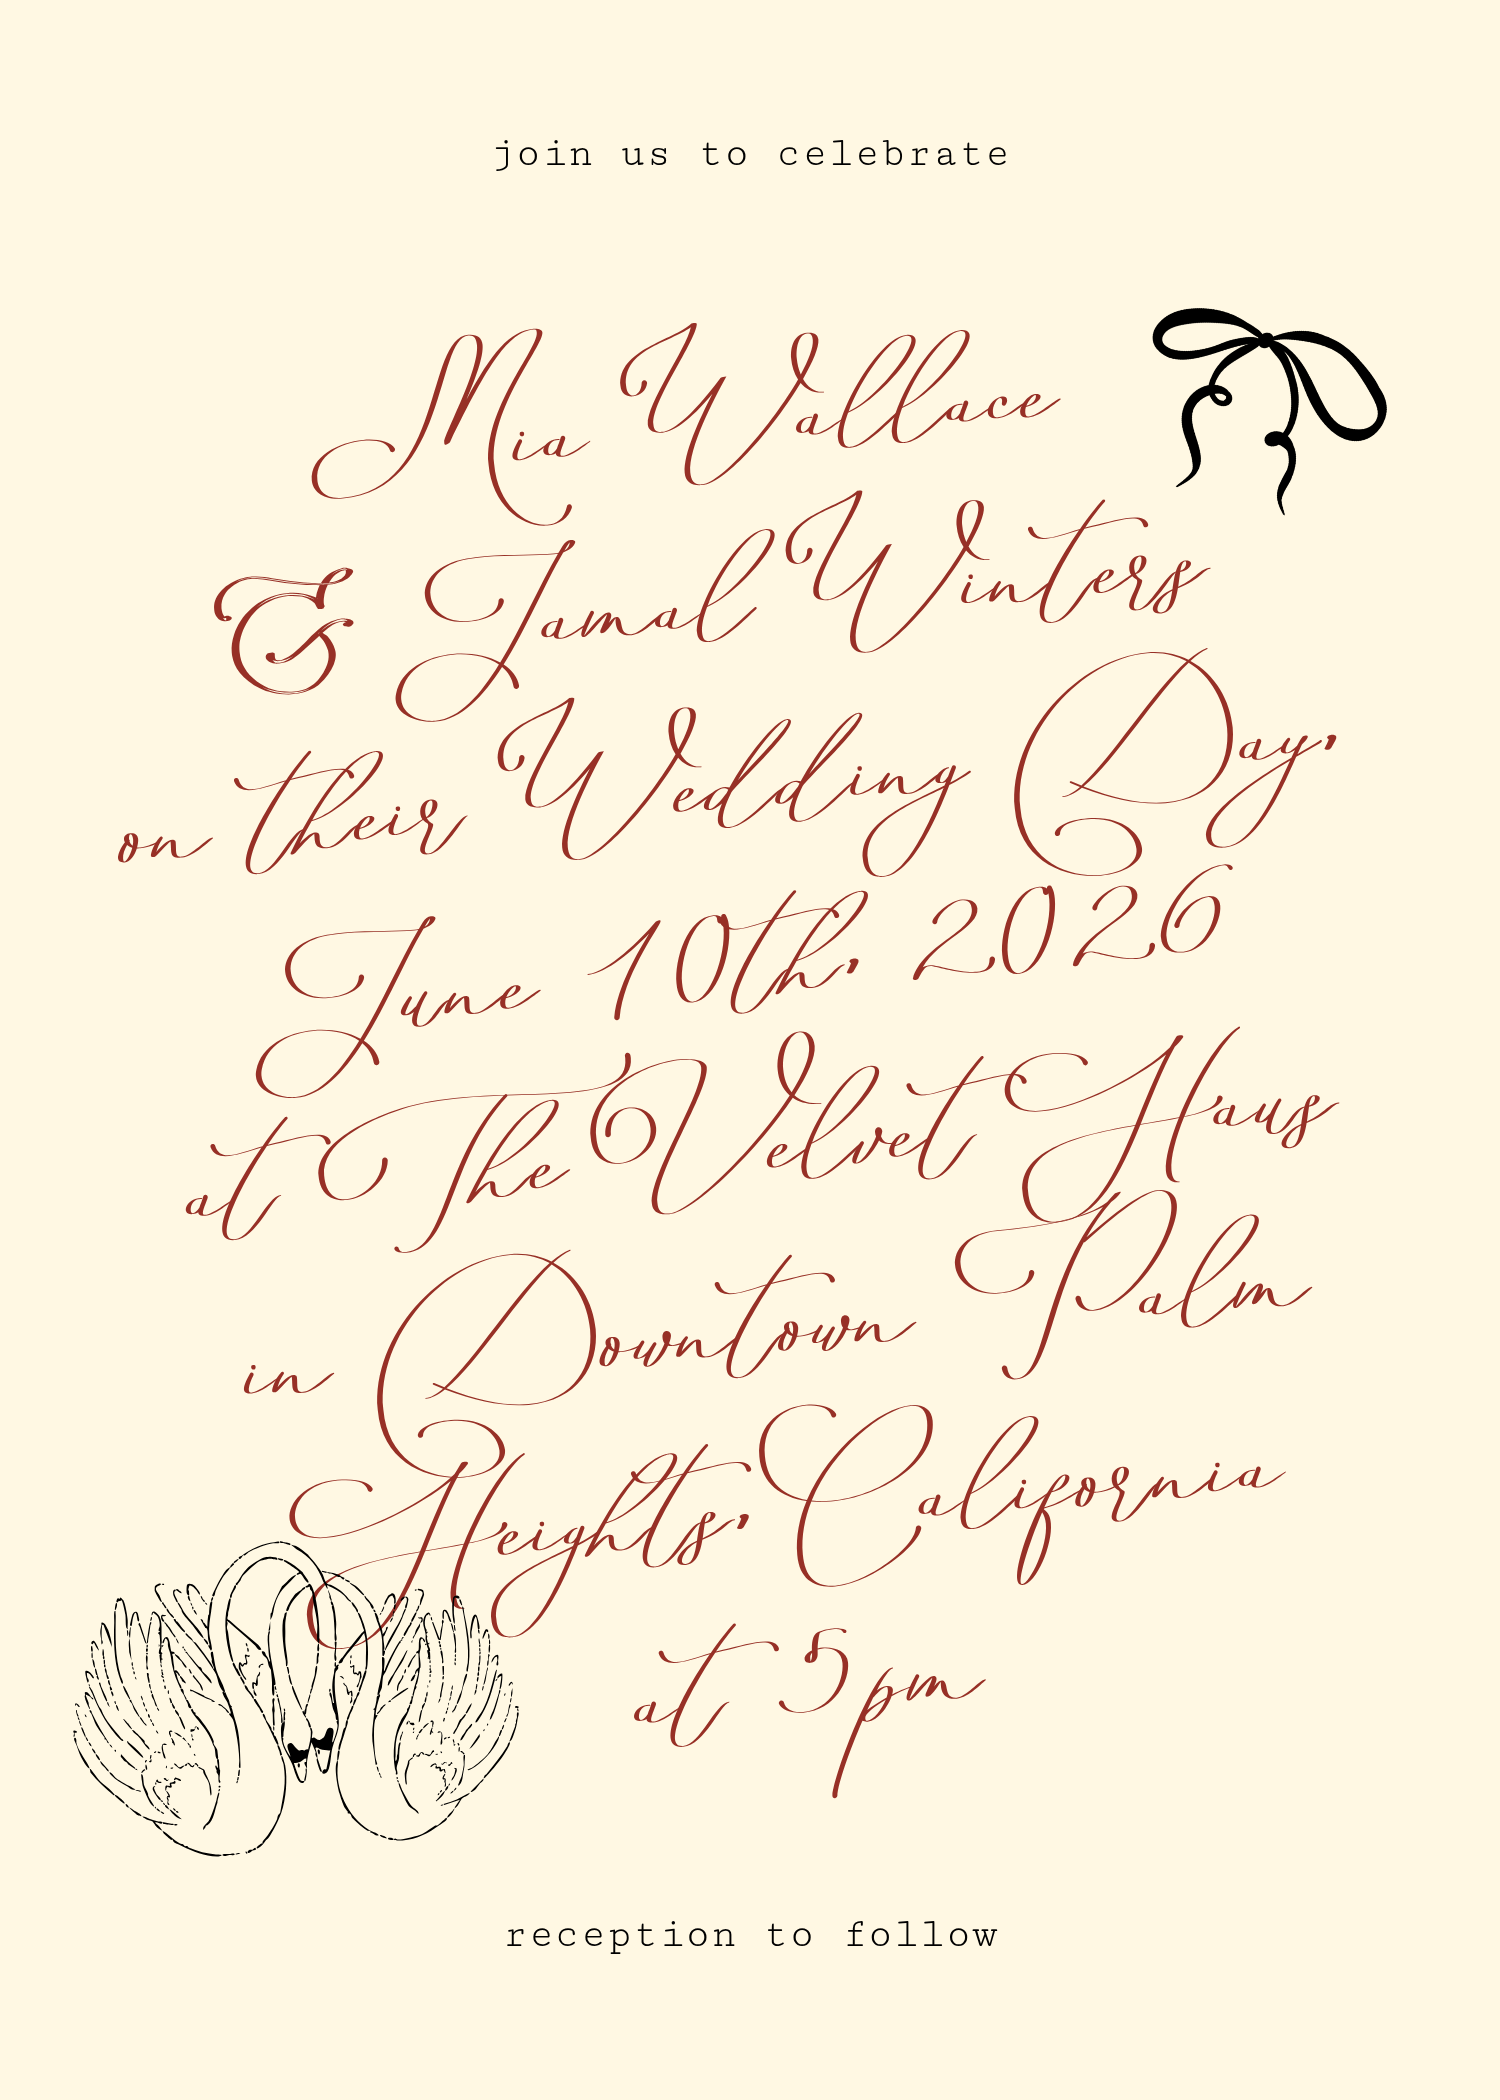 join us to celebrate
Mia Wallace
& Jamal Winters
on their Wedding Day,
June 10th, 2026
at The Velvet Haus
in Downtown Palm
Heights, California
at 5pm
reception to follow